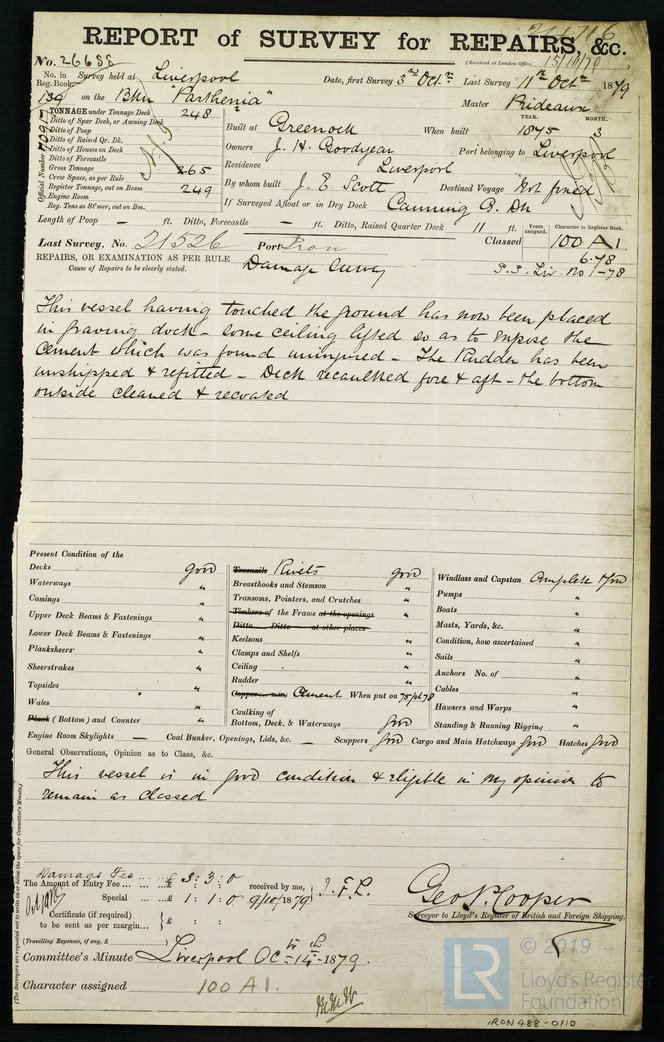 REPORT of SURVEY for REPAIRS, &c.
(Received at London Office, 15/10/79
No. 26688
No. in Reg. Book. Survey held at Liverpool Date, first Survey 3rd Octr. Last Survey 11th Octr. 1879
139 on the Bkn "Parthenia" Master Rideaux
TONNAGE under Tonnage Deck 248
Ditto of Spar Deck, or Awning Deck
Ditto of Poop
Ditto of Raised Qr. Dk.
Ditto of Houses on Deck
Ditto of Forecastle
Gross Tonnage 265
Crew Space, as per Rule
Register Tonnage, cut on Beam 249
Engine Room
Reg. Tons as St'mer, cut on Bm.
Official Number
YEAR. MONTH.
Built at Greenock When built 1875 3
Owners J. H. Goodyear Port belonging to Liverpool
Residence Liverpool
By whom built J. E. Scott Destined Voyage Not fixed
If Surveyed Afloat or in Dry Dock Canning G. Dk
Length of Poop — ft. Ditto, Forecastle — ft. Ditto, Raised Quarter Deck 11 ft.
Years assigned. Character in Register-Book.
Last Survey, No. 21526 Port Iron Classed 100 A1
6-78
REPAIRS, OR EXAMINATION AS PER RULE Damage Survey S.S. Liv. No 1-78
Cause of Repairs to be clearly stated.
This vessel having touched the ground has now been placed
in graving dock - some ceiling lifted so as to expose the
cement which was found uninjured - The Rudder has been
unshipped & refitted - Deck recaulked fore & aft - the bottom
outside cleaned & recoated
Present Condition of the
Decks good
Waterways "
Comings "
Upper Deck Beams & Fastenings "
Lower Deck Beams & Fastenings "
Planksheers "
Sheerstrakes "
Topsides "
Wales "
Plank (Bottom) and Counter "
Treenails Rivets good
Breasthooks and Stemson "
Transoms, Pointers, and Crutches "
Timbers of the Frame at the openings "
Ditto Ditto at other places
Keelsons "
Clamps and Shelfs "
Ceiling "
Rudder "
Copper Cement When put on 75/pt 78
Caulking of
Bottom, Deck, & Waterways good
Windlass and Capstan Complete & good
Pumps "
Boats "
Masts, Yards, &c. "
Condition, how ascertained "
Sails "
Anchors No. of "
Cables "
Hawsers and Warps "
Standing & Running Rigging "
Engine Room Skylights — Coal Bunker, Openings, Lids, &c. — Scuppers good Cargo and Main Hatchways good Hatches good
General Observations, Opinion as to Class, &c.
This vessel is in good condition & eligible in my opinion to
remain as classed
Damage Fee £ 3 : 3 : 0
The Amount of Entry Fee £ : :
Special £ 1 : 1 : 0 received by me, 9/10/1879 J. F. L.
Certificate (if required) to be sent as per margin £ : :
(Travelling Expenses, if any, £ )
Geo. P. Cooper
Surveyor to Lloyd's Register of British and Foreign Shipping.
Committee's Minute Liverpool Oct 14th 1879.
Character assigned 100 A1.
(The Surveyors are requested not to write on or below the space for Committee's Minute.)
© 2019
LR
Lloyd's Register
Foundation
IRON 488-0110